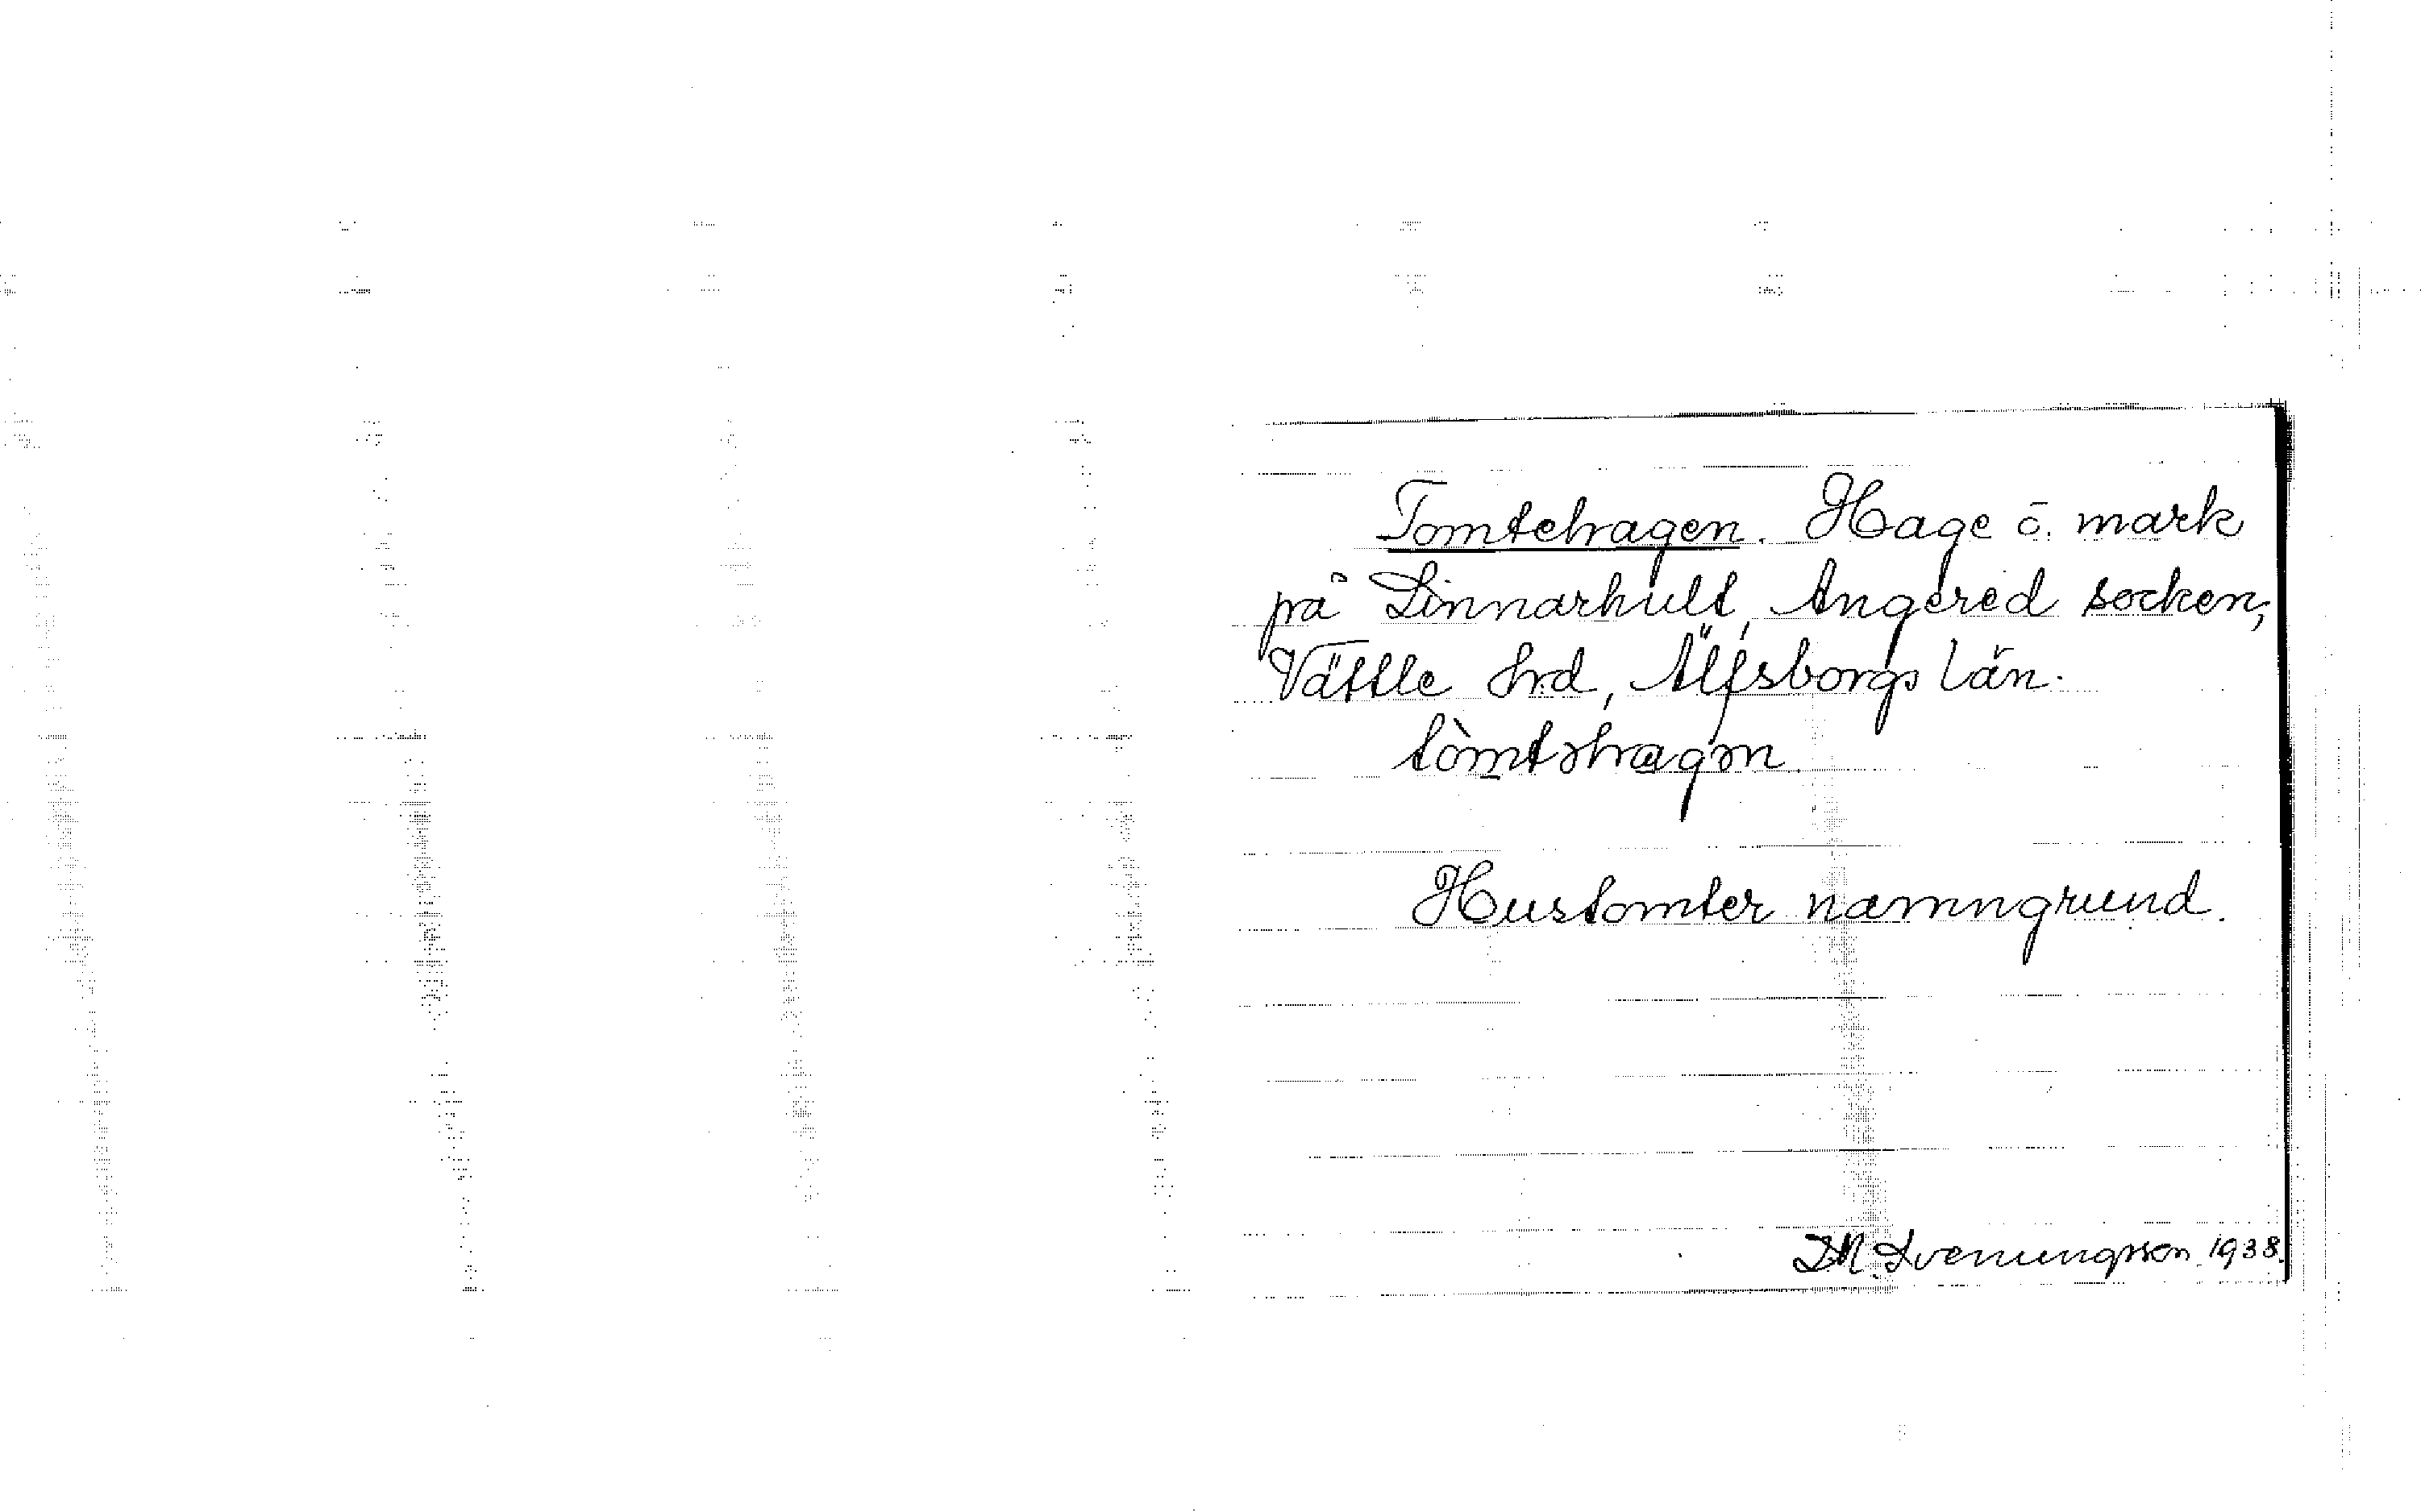 Tomtehagen. Hage ō. mark
på Linnarhult, Angered socken,
Vättle hrd, Älfsborgs län.
tòmtəhagən.
Hustomter namngrund.
I.M. Svenungsson 1938.